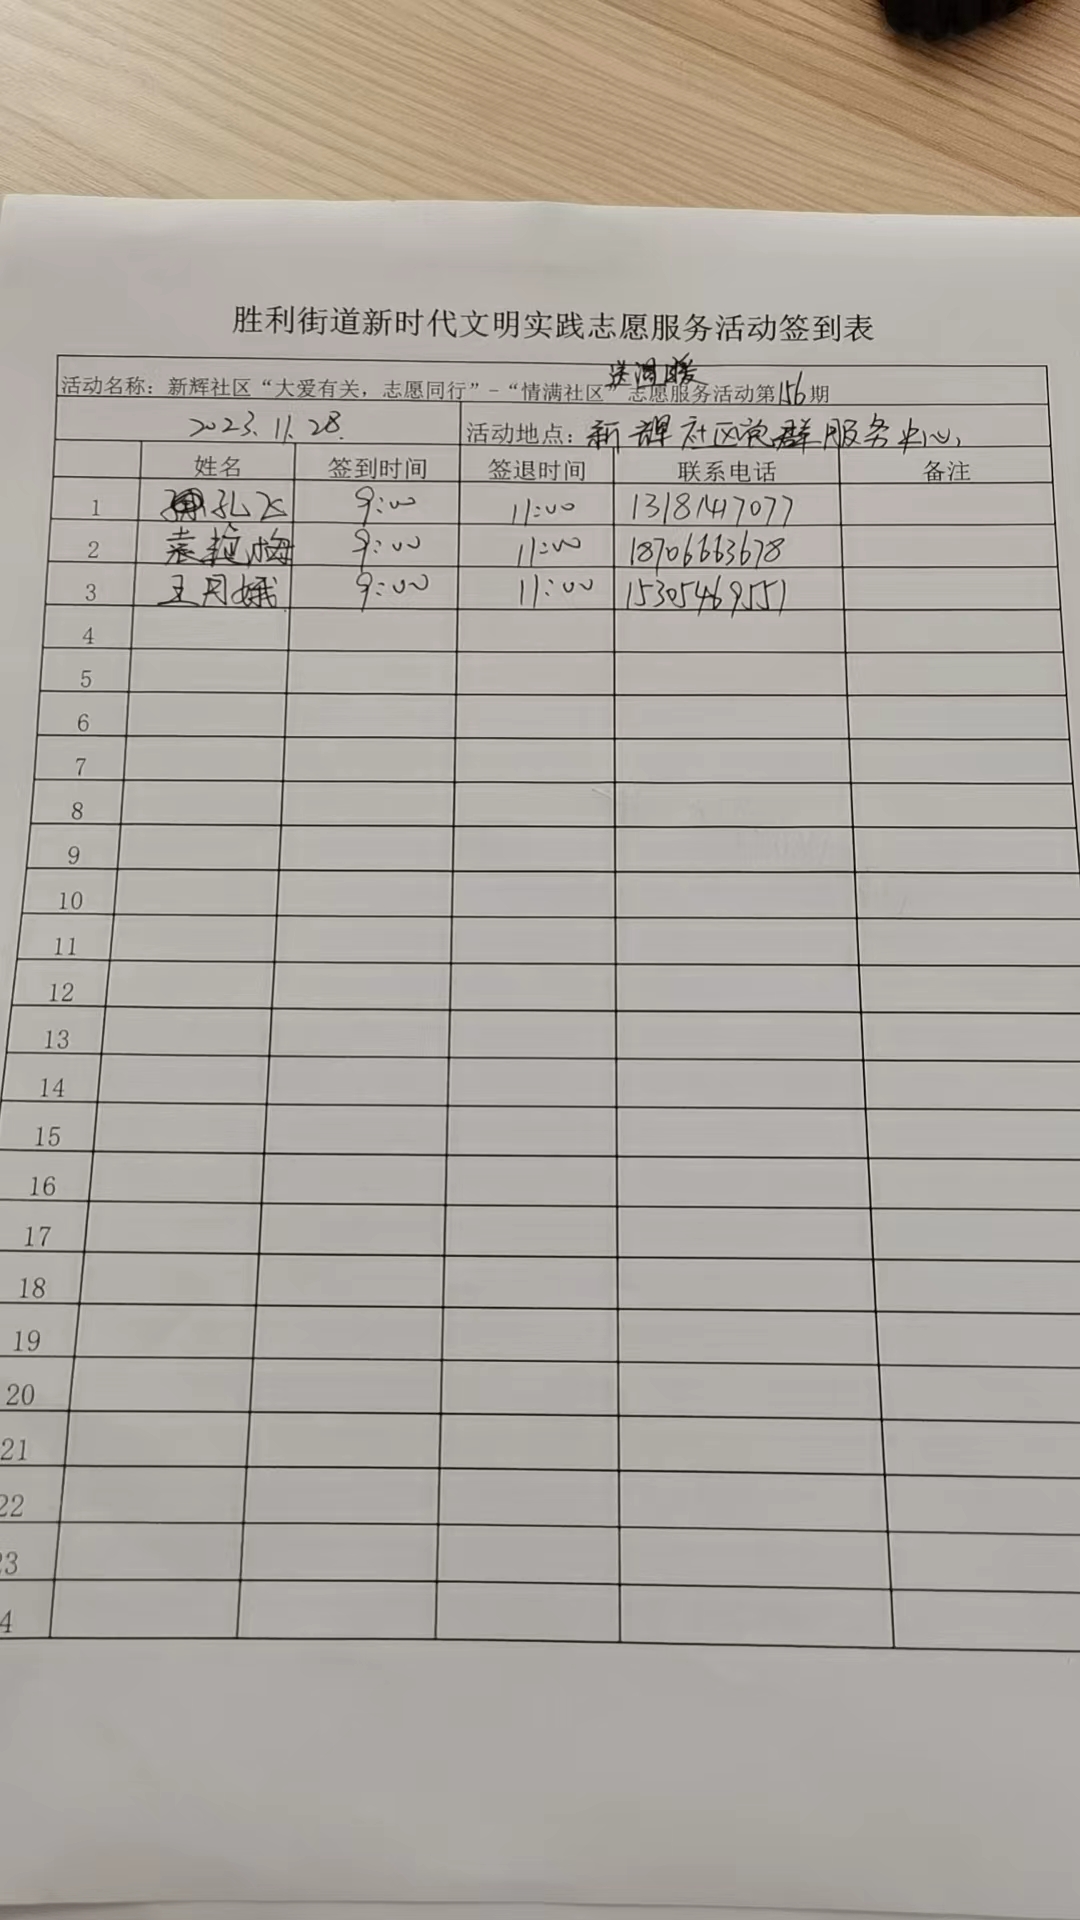 胜利街道新时代文明实践志愿服务活动签到表
送温暖
活动名称：新辉社区“大爱有关，志愿同行”-“情满社区”志愿服务活动第156期
2023.11.28. 活动地点：新辉社区党群服务中心
姓名 签到时间 签退时间 联系电话 备注
1 孔飞 9:00 11:00 13181417077
2 袁 梅 9:00 11:00 18706663678
3 王月娥 9:00 11:00 15305469551
4
5
6
7
8
9
10
11
12
13
14
15
16
17
18
19
20
21
22
23
4